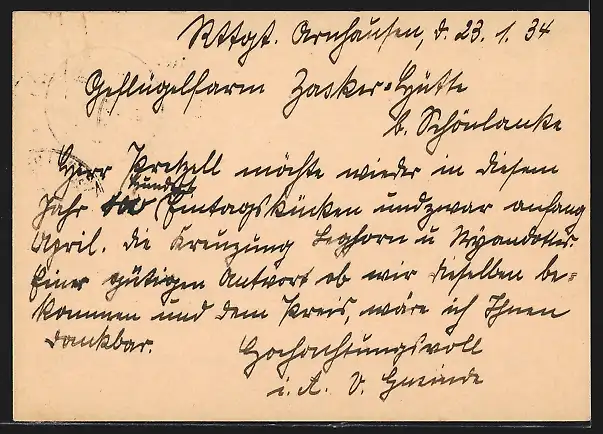 Rttgt. Arnhausen, d. 23. 1. 34
Geflügelfarm Zasker-Hütte
b. Schönlanke
Herr Pretzell möchte wieder in diesem
hundert
Jahr 100 Eintagskücken und zwar anfang
April. die Kreuzung Leghorn u Wyandottes.
Einer gütigen Antwort ob wir dieselben be=
kommen und dem Preis, wäre ich Ihnen
dankbar.
Hochachtungsvoll
i. A. V. Gmeinde